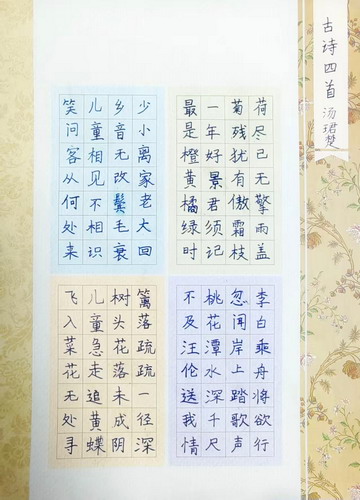 古诗四首 汤珺楚
荷尽已无擎雨盖
菊残犹有傲霜枝
一年好景君须记
最是橙黄橘绿时
少小离家老大回
乡音无改鬓毛衰
儿童相见不相识
笑问客从何处来
李白乘舟将欲行
忽闻岸上踏歌声
桃花潭水深千尺
不及汪伦送我情
篱落疏疏一径深
树头花落未成阴
儿童急走追黄蝶
飞入菜花无处寻